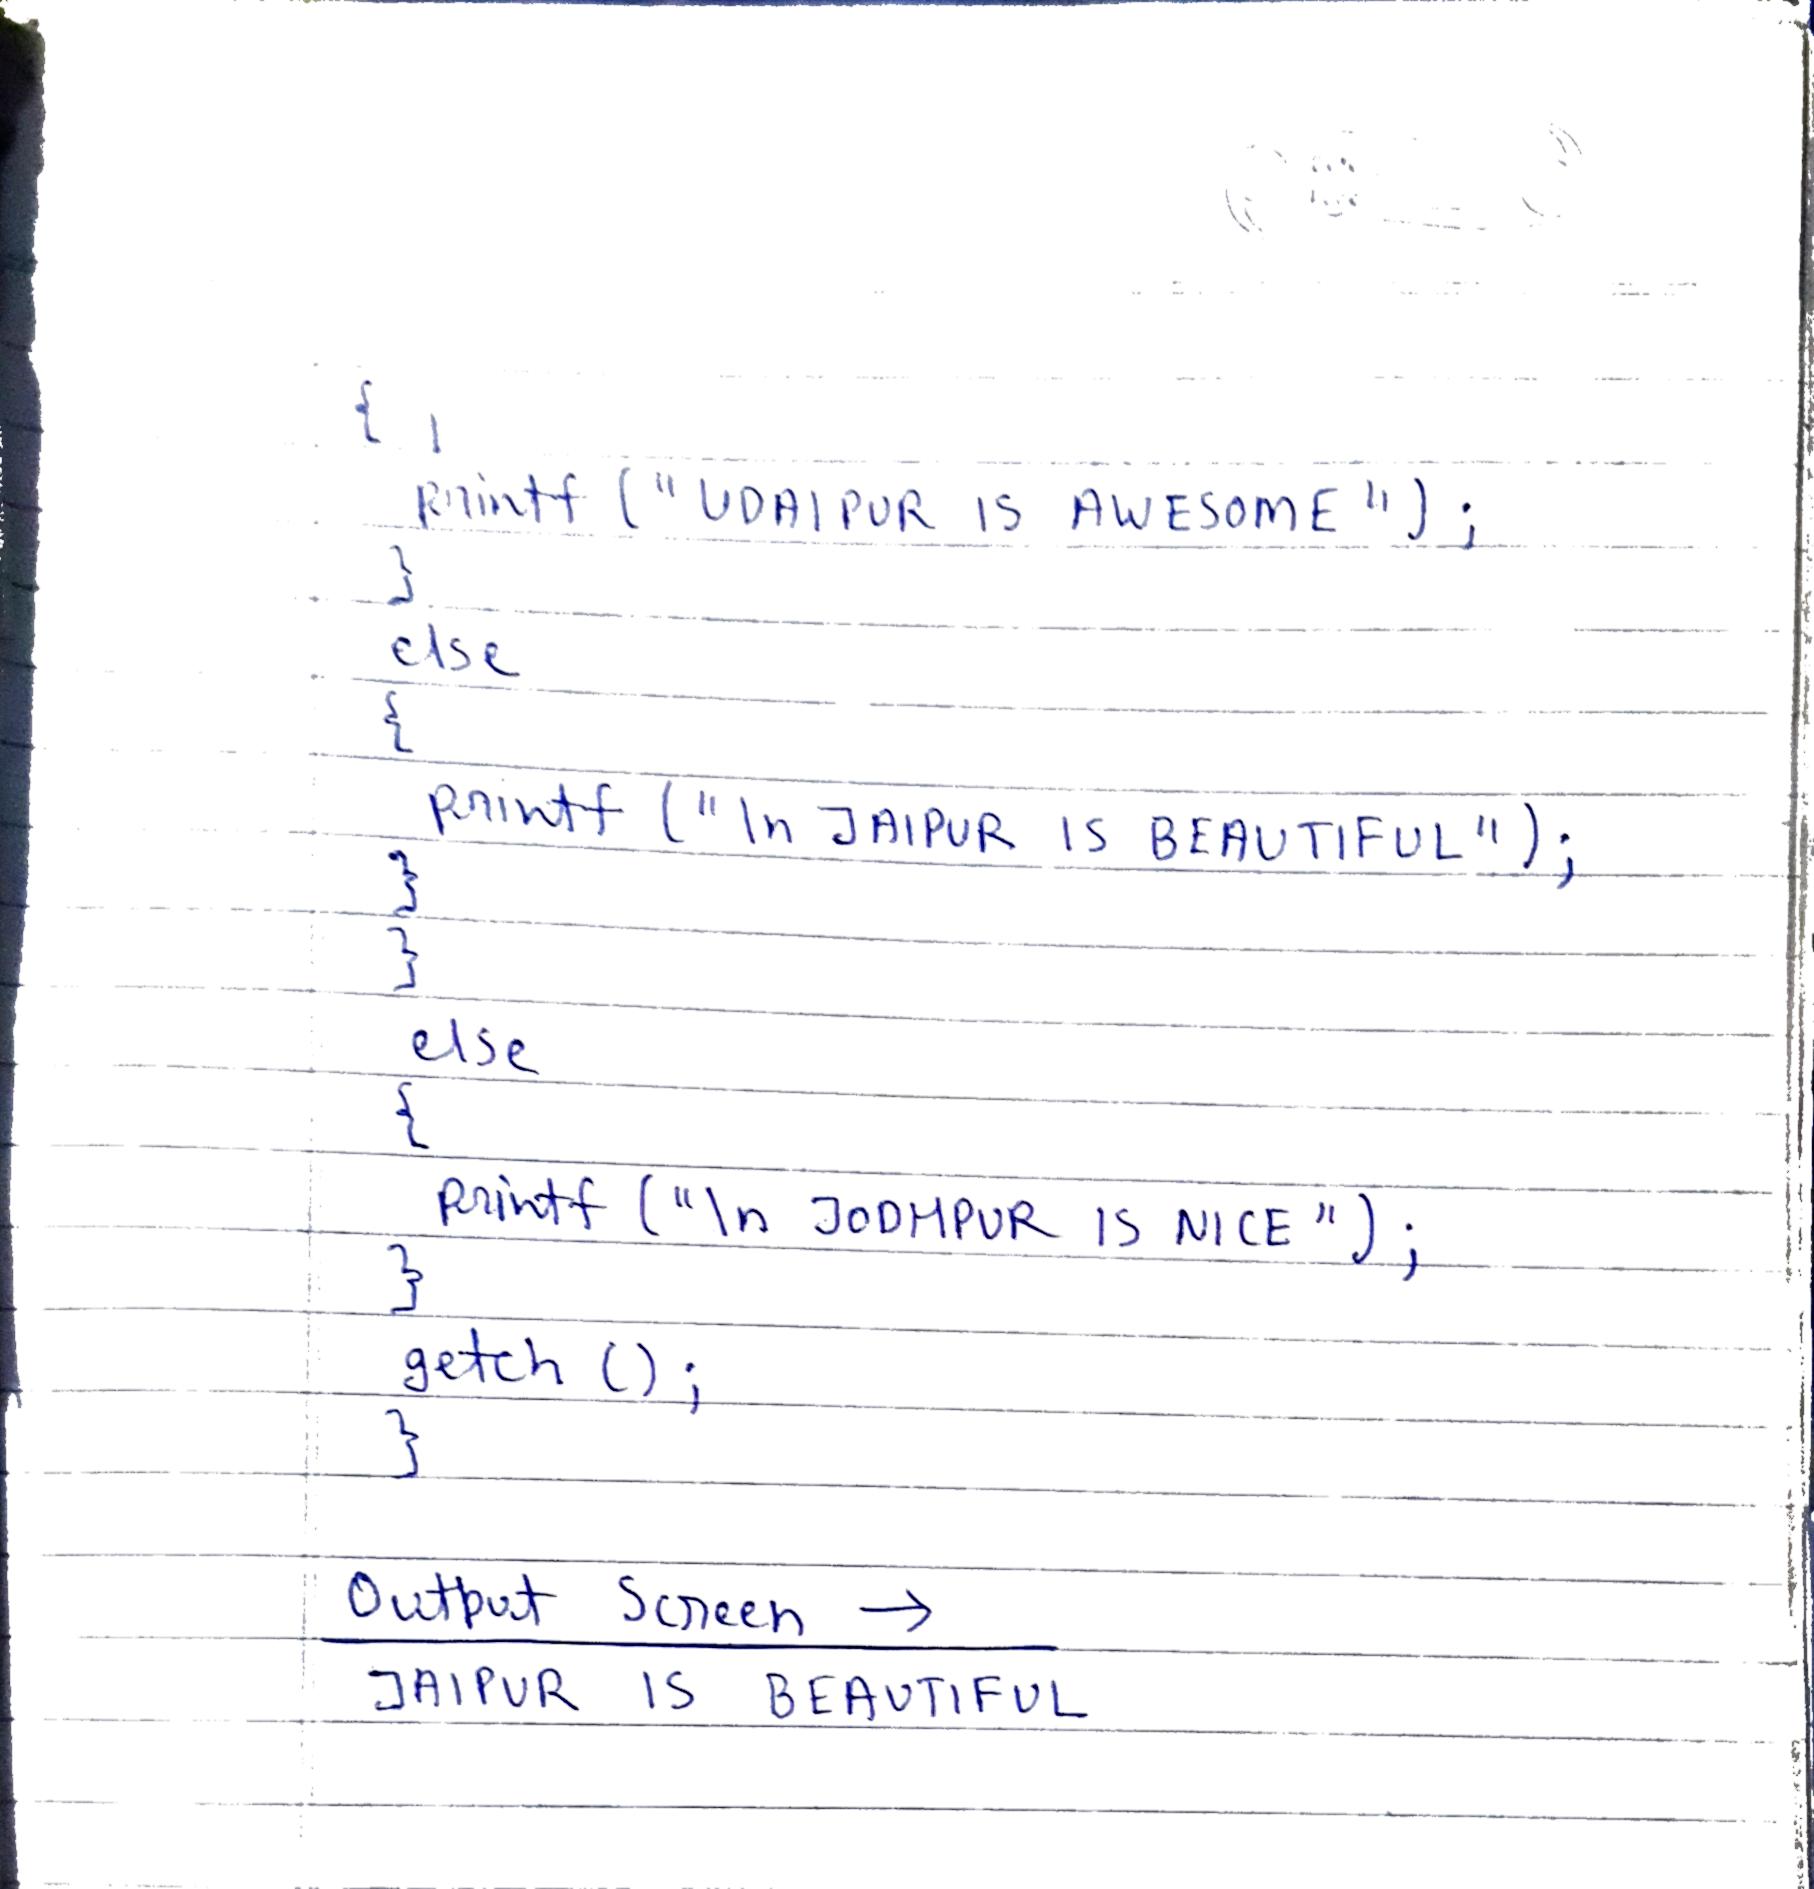 {
printf ("UDAIPUR IS AWESOME");
}
else
{
printf ("\n JAIPUR IS BEAUTIFUL");
}
}
else
{
printf ("\n JODHPUR IS NICE");
}
getch ();
}
Output Screen →
JAIPUR IS BEAUTIFUL